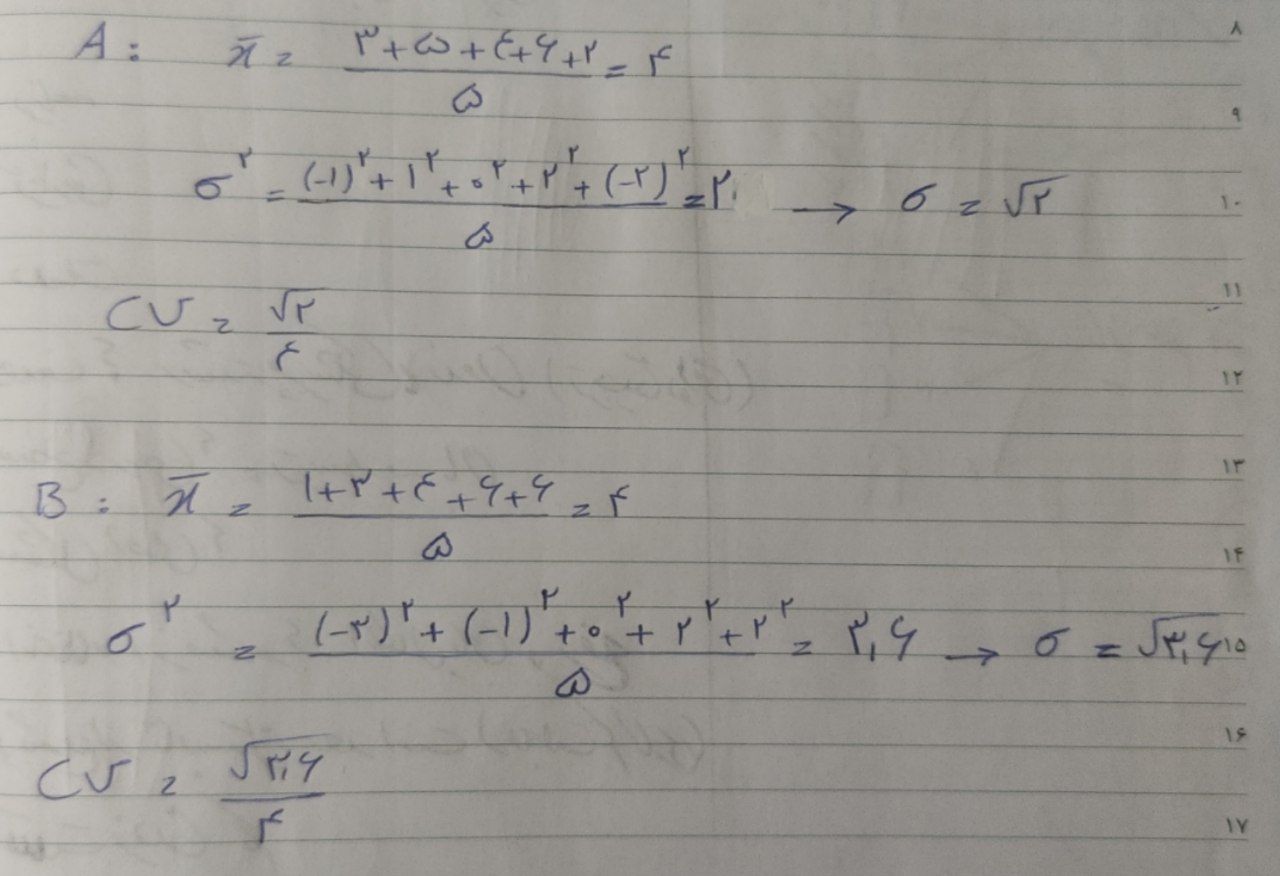 ۸
A: x̄ = (۳+۵+۴+۶+۲)/۵ = ۴
۹
σ^۲ = ((-۱)^۲+۱^۲+۰^۲+۲^۲+(-۲)^۲)/۵ = ۲ → σ = √۲
۱۰
۱۱
CV = √۲/۴
۱۲
۱۳
B: x̄ = (۱+۳+۴+۶+۶)/۵ = ۴
۱۴
σ^۲ = ((-۳)^۲+(-۱)^۲+۰^۲+۲^۲+۲^۲)/۵ = ۳,۶ → σ = √۳,۶
۱۵
۱۶
CV = √۳,۶/۴
۱۷